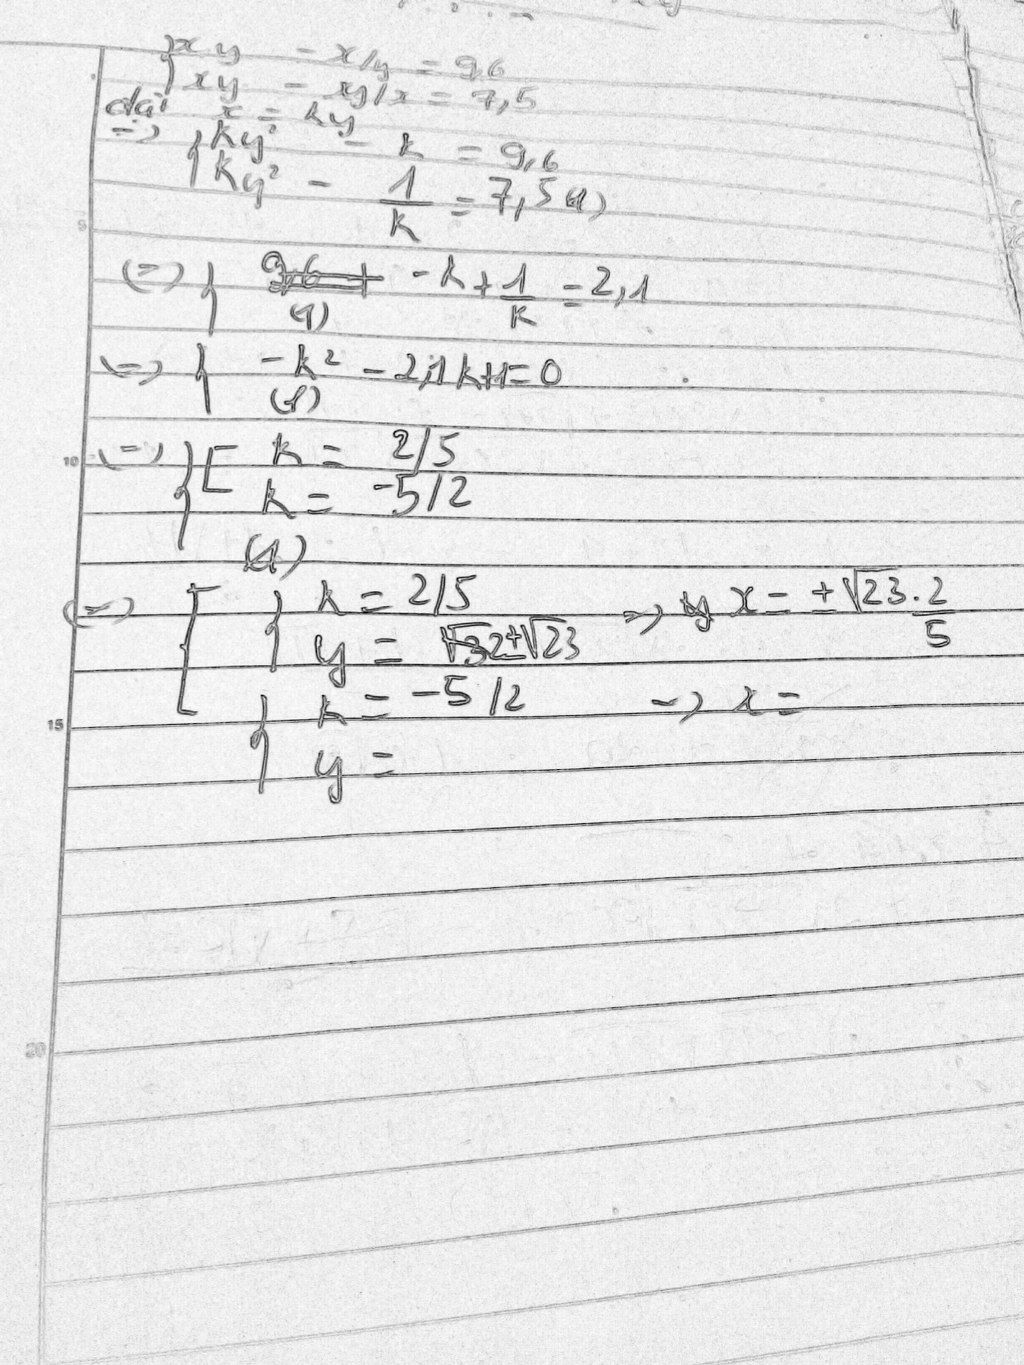 xy - x/y = 9,6
xy - y/x = 7,5
đặt x = ky
=> ky² - k = 9,6
ky² - 1/k = 7,5 (1)
(=) -k + 1/k = 2,1
(1)
(=) -k² - 2,1k+1=0
(1)
(=) k = 2/5
k = -5/2
(1)
(=) k = 2/5 => x = ±√23.2/5
y = ±√23
k = -5/2 -> x =
y =
5
10
15
20